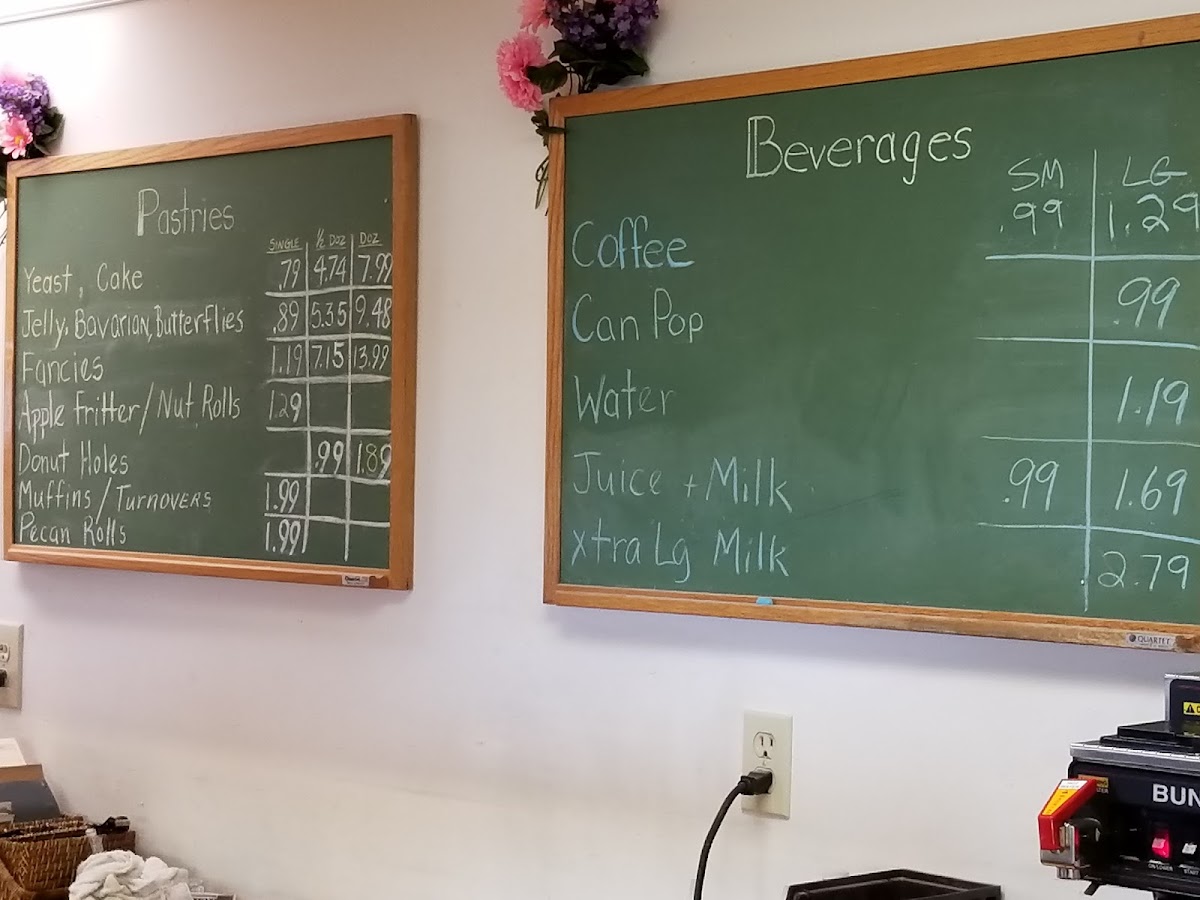 Pastries
SINGLE ½ DOZ DOZ
Yeast, Cake .79 4.74 7.99
Jelly, Bavarian, Butterflies .89 5.35 9.48
Fancies 1.19 7.15 13.99
Apple Fritter/Nut Rolls 1.29
Donut Holes .99 1.89
Muffins/TURNOVERS 1.99
Pecan Rolls 1.99
Beverages
SM LG
Coffee .99 1.29
Can Pop .99
Water 1.19
Juice + Milk .99 1.69
xtra Lg Milk 2.79
QUARTET
BUN
ON/LOWER
START